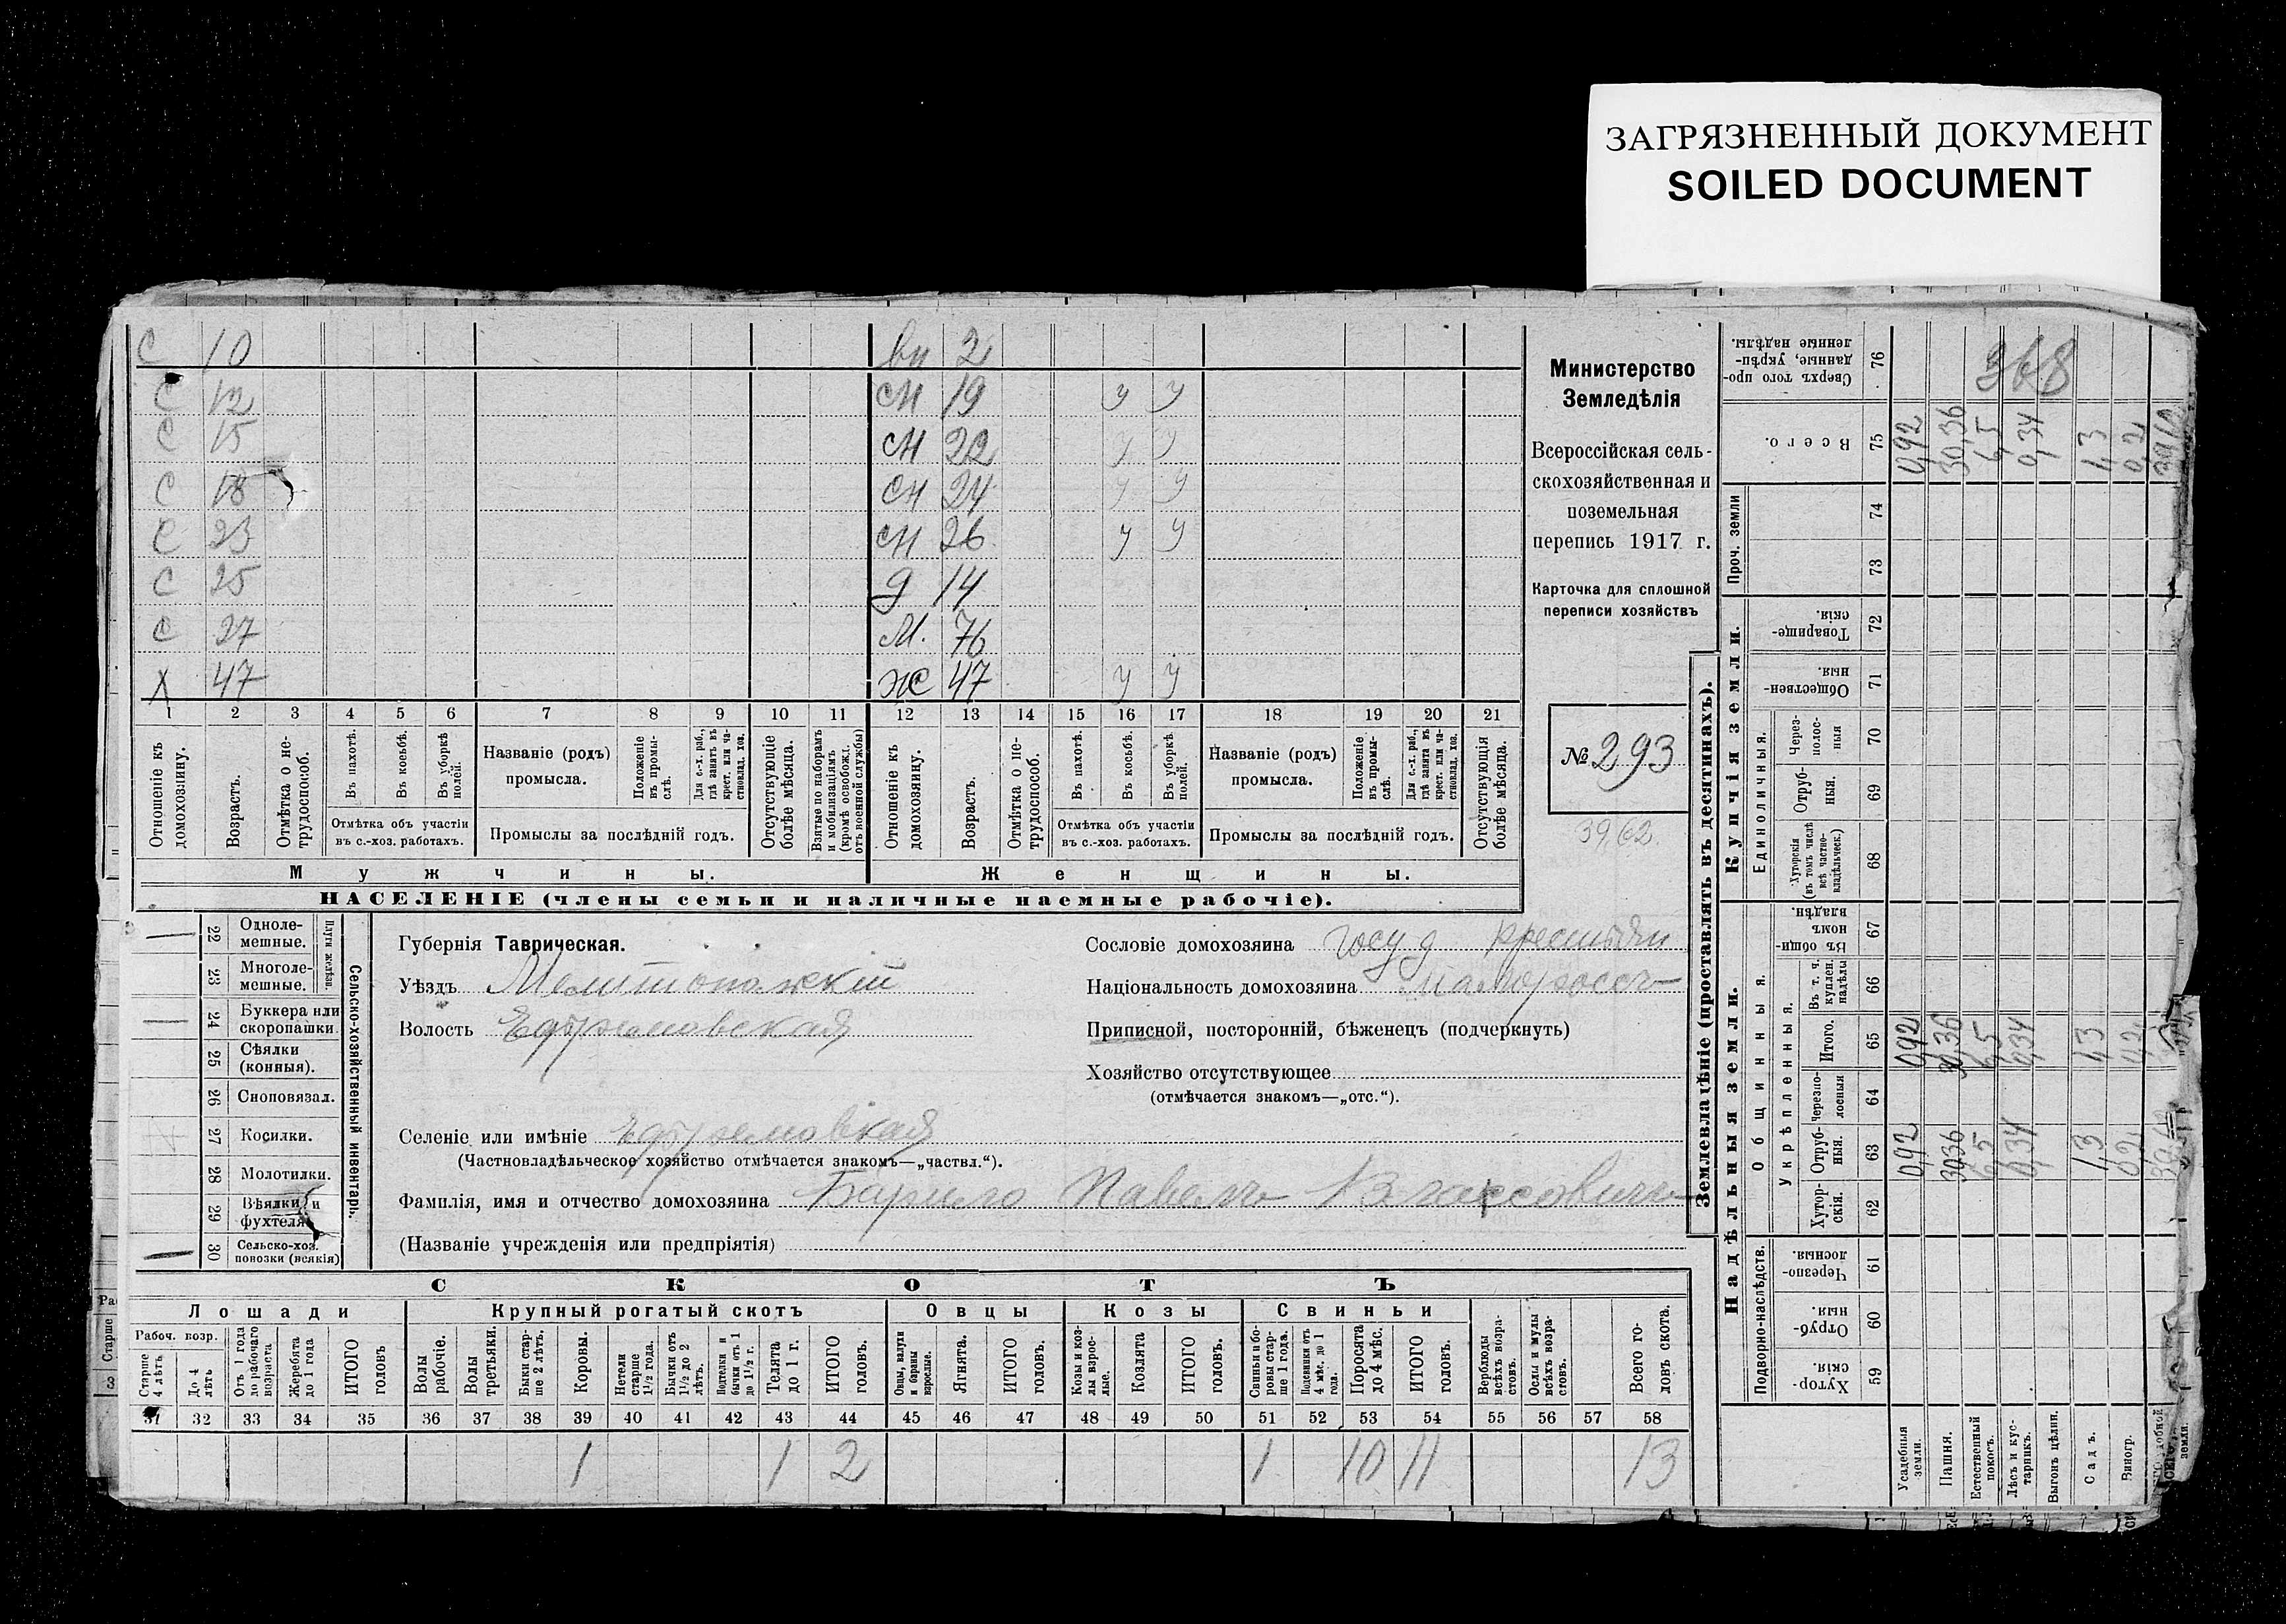 ЗАГРЯЗНЕННЫЙ ДОКУМЕНТ
SOILED DOCUMENT
С 10 вн 2
С 12 сн 19 у у
С 15 сн 22 у у
С 18 сн 24 у у
С 23 сн 26 у у
С 25 д 14
С 27 М. 76
Х 47 ж 47 у у
1 2 3 4 5 6 7 8 9 10 11 12 13 14 15 16 17 18 19 20 21
Отношеніе къ домохозяину.
Возрастъ.
Отмѣтка о не-трудоспособ.
Въ пахотѣ.
Въ косьбѣ.
Въ уборкѣ полей.
Отмѣтка объ участіи
въ с.-хоз. работахъ.
Названіе (родъ)
промысла.
Положеніе въ промы-слѣ.
Для с.-х. раб., гдѣ занятъ въ крест. или ча-стновлад. хоз.
Промыслы за послѣдній годъ.
Отсутствующіе болѣе мѣсяца.
Взятые по наборамъ и мобилизаціямъ (кромѣ освобожд. отъ военной службы)
Отношеніе къ домохозяину.
Возрастъ.
Отмѣтка о не-трудоспособ.
Въ пахотѣ.
Въ косьбѣ.
Въ уборкѣ полей.
Отмѣтка объ участіи
въ с.-хоз. работахъ.
Названіе (родъ)
промысла.
Положеніе въ промы-слѣ.
Для с.-х. раб., гдѣ занята въ крест. или ча-стновлад. хоз.
Промыслы за послѣдній годъ.
Отсутствующія болѣе мѣсяца.
Мужчины. Женщины.
НАСЕЛЕНІЕ (члены семьи и наличные наемные рабочіе).
Министерство
Земледѣлія
Всероссійская сель-
скохозяйственная и
поземельная
перепись 1917 г.
Карточка для сплошной
переписи хозяйствъ
№ 293
39,62.
22 Одноле-мешные.
23 Многоле-мешные.
Плуги желѣзн.
24 Буккера или скоропашки.
25 Сѣялки (конныя).
26 Сноповязал.
27 Косилки.
28 Молотилки.
29 Вѣялки и фухтеля
30 Сельско-хоз. повозки (всякія)
Сельско-хозяйственный инвентарь.
Губернія Таврическая.
Уѣздъ Мелитопольскій
Волость Ефремовская
Селеніе или имѣніе Ефремовская
(Частновладѣльческое хозяйство отмѣчается знакомъ—„частвл.“).
Фамилія, имя и отчество домохозяина Барило Павелъ Власовичъ
(Названіе учрежденія или предпріятія)
Сословіе домохозяина госуд крестьян
Національность домохозяина малоросс
Приписной, посторонній, бѣженецъ (подчеркнуть)
Хозяйство отсутствующее
(отмѣчается знакомъ—„отс.“).
СКОТЪ
Лошади Крупный рогатый скотъ Овцы Козы Свиньи
Рабоч. возр.
Старше 4 лѣтъ
До 4 лѣтъ
Отъ 1 года до рабочаго возраста
Жеребята до 1 года
ИТОГО головъ
Волы рабочіе.
Волы третьяки.
Быки стар-ше 2 лѣтъ.
Коровы.
Нетели старше 1½ года.
Бычки отъ 1½ до 2 лѣтъ.
Подтелки и бычки отъ 1 до 1½ г.
Телята до 1 г.
ИТОГО головъ.
Овцы, валухи и бараны взрослые.
Ягнята.
ИТОГО головъ.
Козы и коз-лы взрос-лые.
Козлята
ИТОГО головъ.
Свиньи и бо-ровы стар-ше 1 года.
Подсвинки отъ 4 мѣс. до 1 года.
Поросята до 4 мѣс.
ИТОГО головъ.
Верблюды всѣхъ возра-стовъ.
Ослы и мулы всѣхъ возра-стовъ.
Всего го-ловъ скота.
31 32 33 34 35 36 37 38 39 40 41 42 43 44 45 46 47 48 49 50 51 52 53 54 55 56 57 58
1 1 2 1 10 11 13
Землевладѣніе (проставлять въ десятинахъ).
Купчія земли.
Надѣльныя земли.
Сверхъ того про-данные, укрѣп-ленные надѣлы. 76
368
Всего. 75 0,92 30,36 6,5 0,34 1,3 0,2
Проч. земли 74 73
Товарище-скія. 72
Обществен-ныя. 71
Единоличныя.
Через-полос-ныя 70
Отруб-ныя. 69
Хуторскія (въ томъ числѣ всѣ частно-владѣльческ.) 68
Общинныя.
Въ общи-номъ владѣн. 67
Укрѣпленныя.
Въ т. ч. куплен. надѣлы 66
Итого. 65 0,92 30,36 6,5 0,34 1,3 0,2
Черезпо-лосныя 64
Отруб-ныя. 63 0,92 30,36 6,5 0,34 1,3 0,2
Хутор-скія. 62
Подворно-наслѣдств.
Черезпо-лосныя. 61
Отруб-ныя. 60
Хутор-скія. 59
Усадебныя земли.
Пашня.
Естественный покосъ.
Лѣсъ и кус-тарникъ.
Выгонъ цѣлин.
Садъ.
Виногр.
земля.